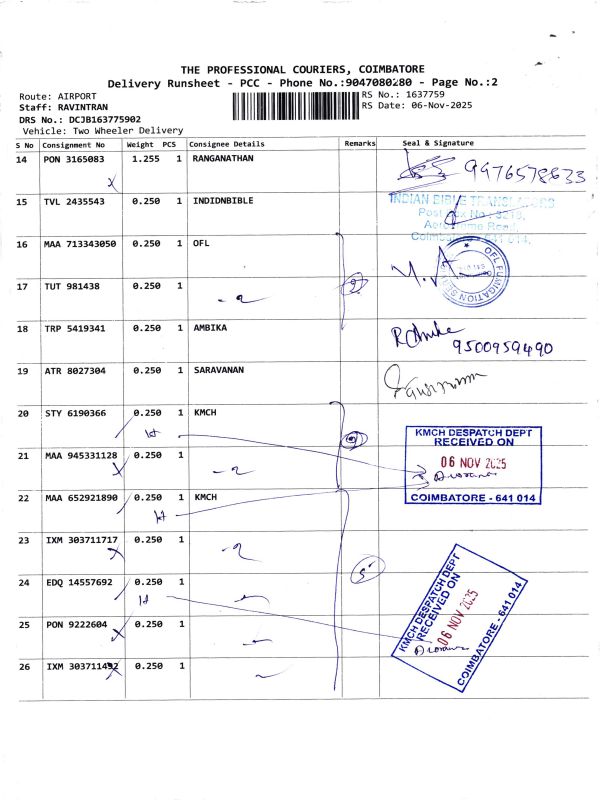 THE PROFESSIONAL COURIERS, COIMBATORE
Delivery Runsheet - PCC - Phone No.:9047080280 - Page No.:2
Route: AIRPORT
RS No.: 1637759
Staff: RAVINTRAN
RS Date: 06-Nov-2025
DRS No.: DCJB163775902
Vehicle: Two Wheeler Delivery
S No Consignment No Weight PCS Consignee Details Remarks Seal & Signature
14 PON 3165083 1.255 1 RANGANATHAN 9976578633
15 TVL 2435543 0.250 1 INDIDNBIBLE
INDIAN BIBLE TRANSLATORS
Post Box No: 3219,
Aerodrome Road,
Coimbatore - 641 014.
16 MAA 713343050 0.250 1 OFL
OFL FUMIGATION
17 TUT 981438 0.250 1
18 TRP 5419341 0.250 1 AMBIKA
9500959490
19 ATR 8027304 0.250 1 SARAVANAN
20 STY 6190366 0.250 1 KMCH
KMCH DESPATCH DEPT
RECEIVED ON
06 NOV 2025
COIMBATORE - 641 014
21 MAA 945331128 0.250 1
22 MAA 652921890 0.250 1 KMCH
23 IXM 303711717 0.250 1
24 EDQ 14557692 0.250 1
KMCH DESPATCH DEPT
RECEIVED ON
06 NOV 2025
COIMBATORE - 641 014
25 PON 9222604 0.250 1
26 IXM 303711492 0.250 1